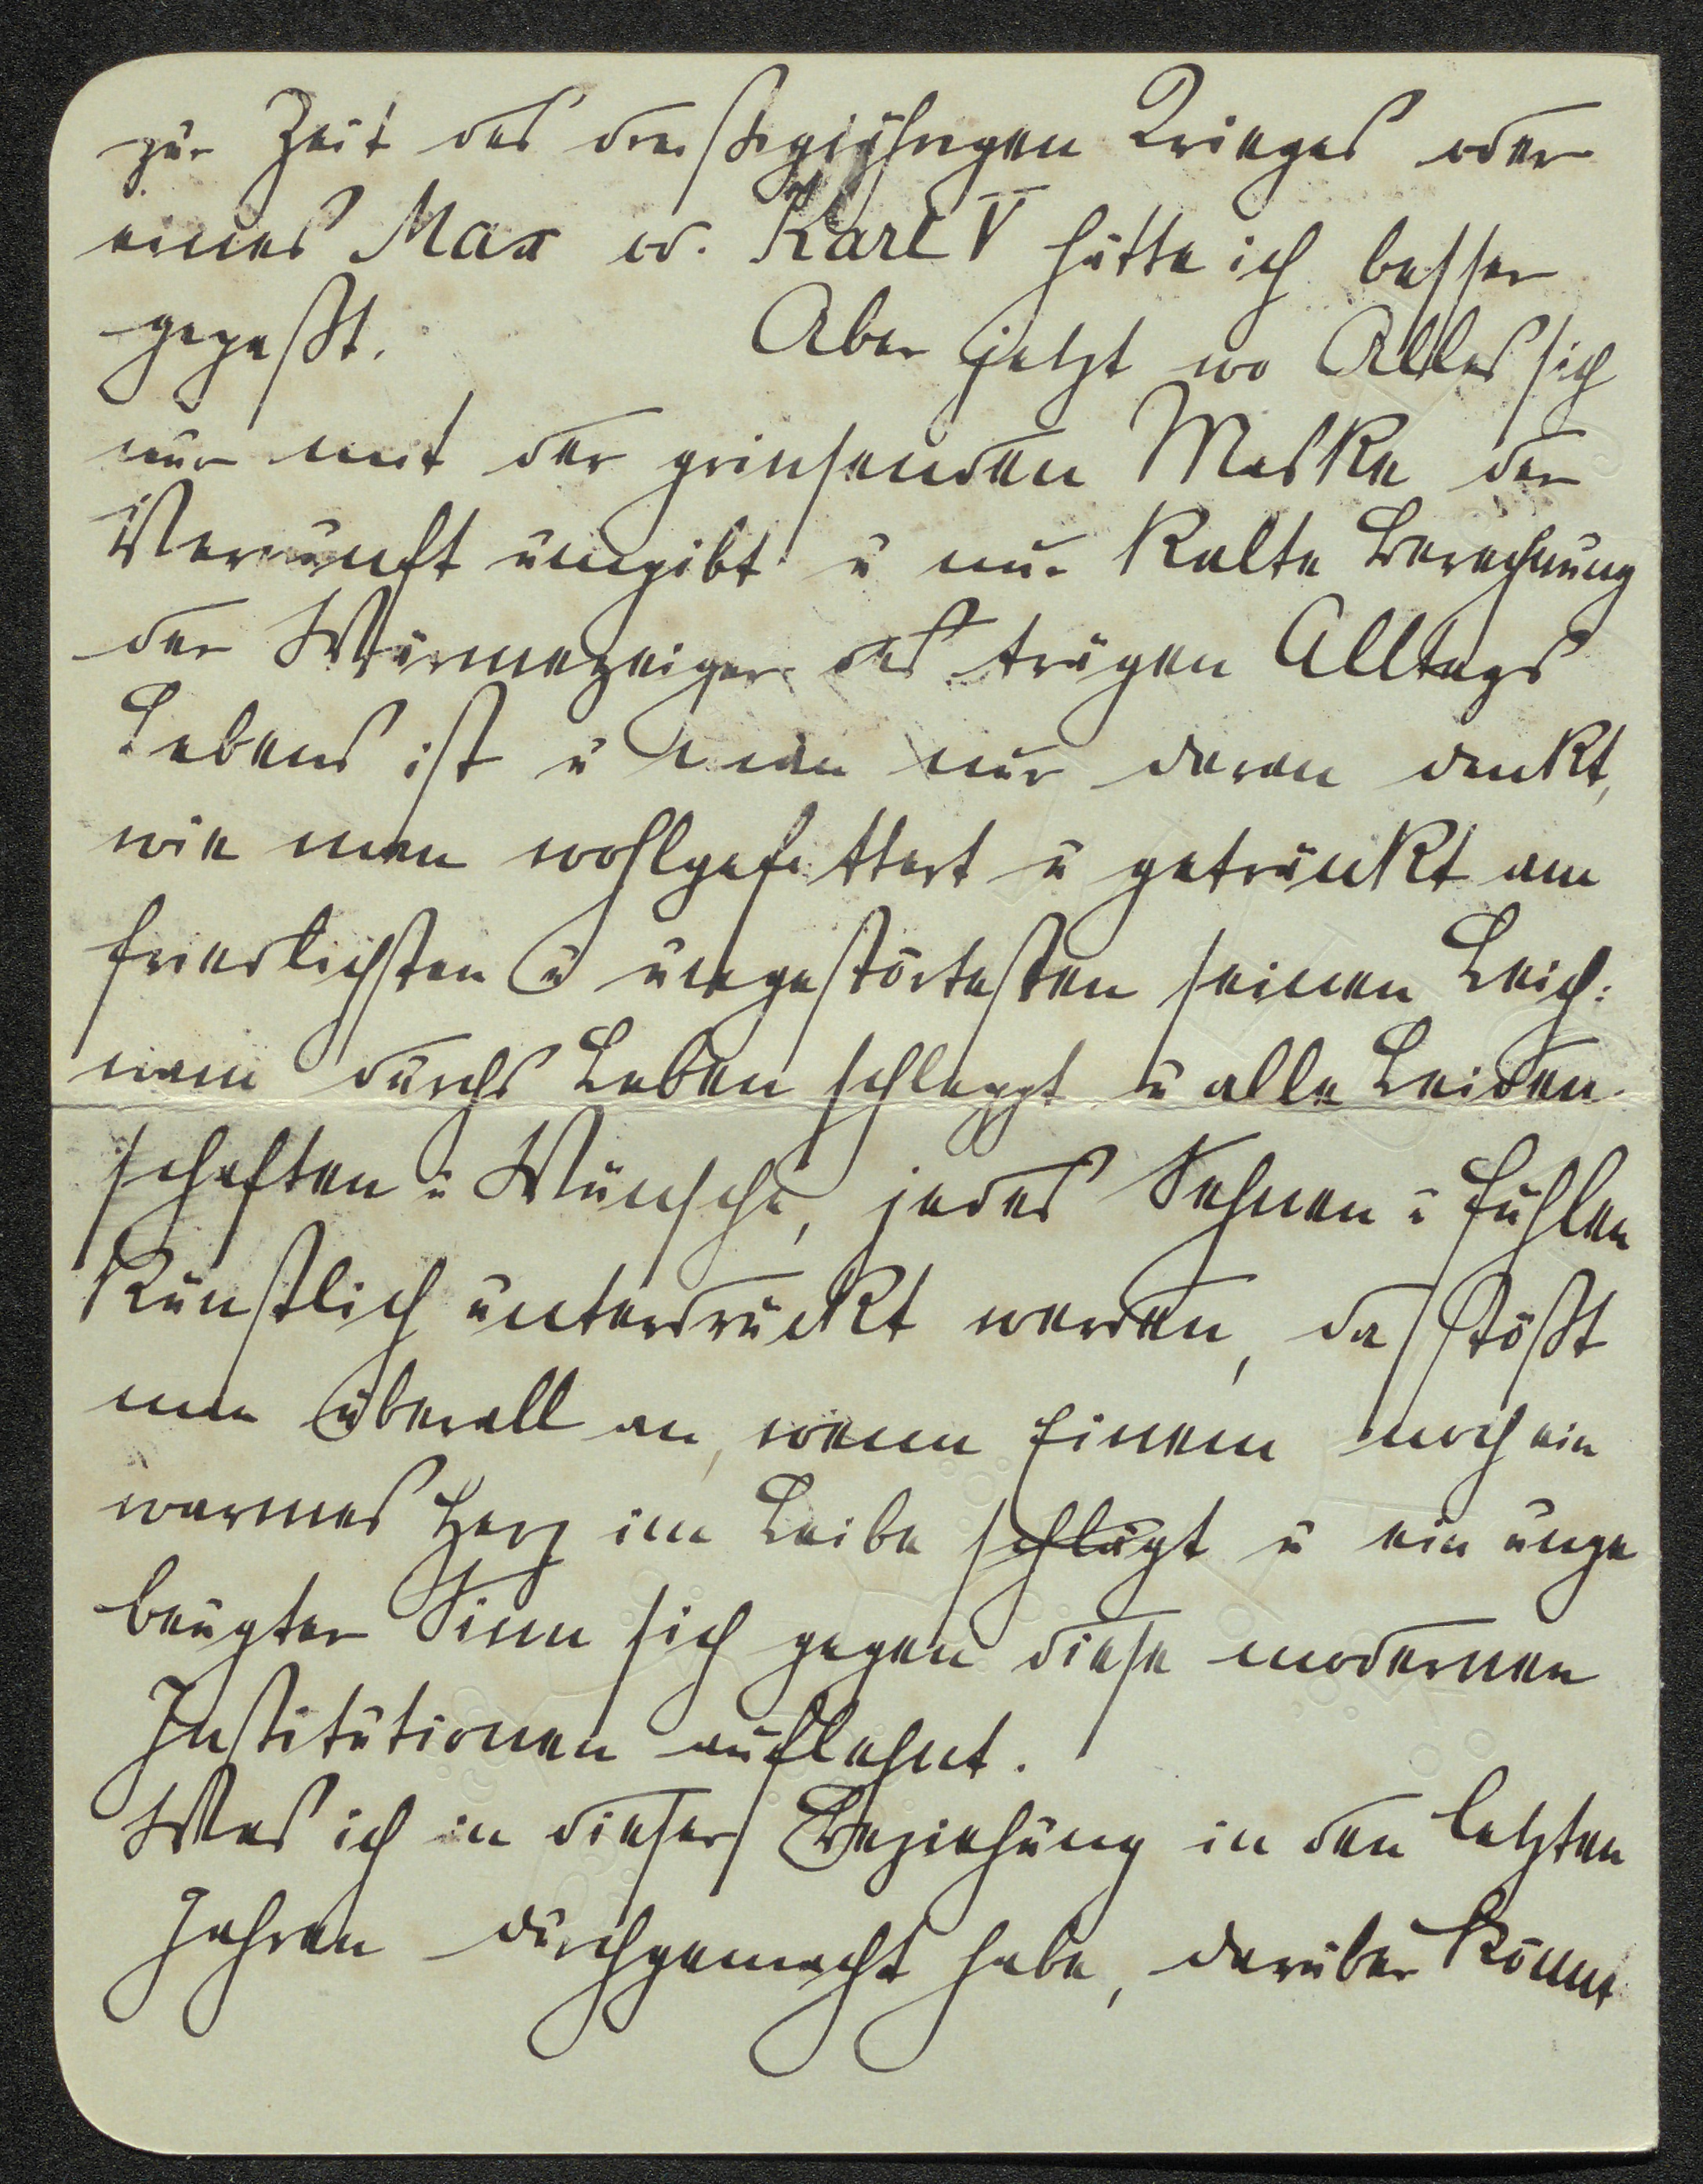 zur Zeit des dreißigjährigen Krieges oder
eines Max od. Karl V hätte ich besser
gepaßt. Aber jetzt wo Alles sich
nur mit der grinsenden Maske der
Vernunft umgibt u nur kalte Berechnung
der Wärmezeiger des trägen Alltags
Lebens ist u man nur daran denkt,
wie man wohlgefüttert u getränkt am
friedlichsten u ungestörtesten seinen Leich:
nam durchs Leben schleppt u alle Leiden
schaften u Wünsche, jedes Sehnen u Fühlen
künstlich unterdrückt werden, da stößt
man überall an, wenn Einem noch ein
warmes Herz im Leibe schlägt u ein unge
beugter Sinn sich gegen diese modernen
Institutionen auflehnt.
Was ich in dieser Beziehung in den letzten
Jahren durchgemacht habe, darüber könnt